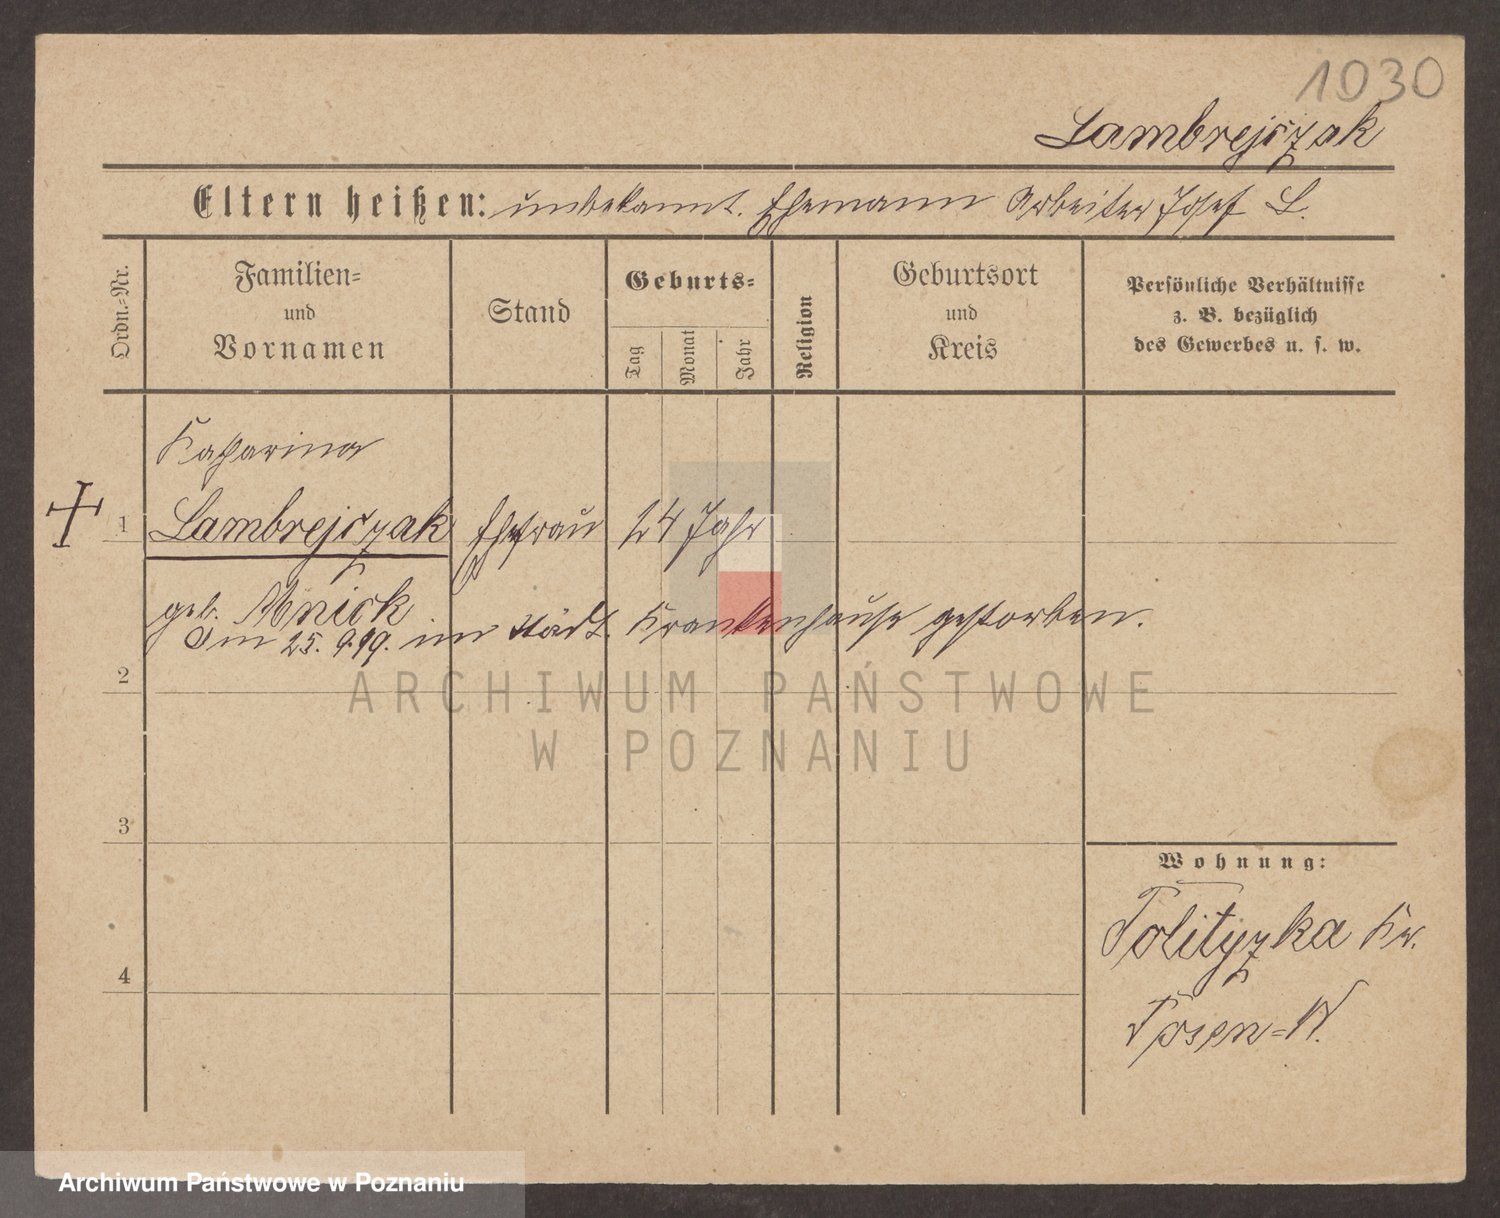 1030
Lambrejczak
Eltern heißen: unbekannt. Ehemann Arbeiter Josef L.
Ordn.-Nr.
Familien-
und
Vornamen
Stand
Geburts-
Tag
Monat
Jahr
Religion
Geburtsort
und
Kreis
Persönliche Verhältnisse
z. B. bezüglich
des Gewerbes u. s. w.
Katharina
1 Lambrejczak Ehefrau 24 Jahr
geb. Mnick
Am 25. 9. 19. im städt. Krankenhause gestorben.
2
ARCHIWUM PAŃSTWOWE
W POZNANIU
3
Wohnung:
Polityzka Kr.
4
Posen-W.
Archiwum Państwowe w Poznaniu